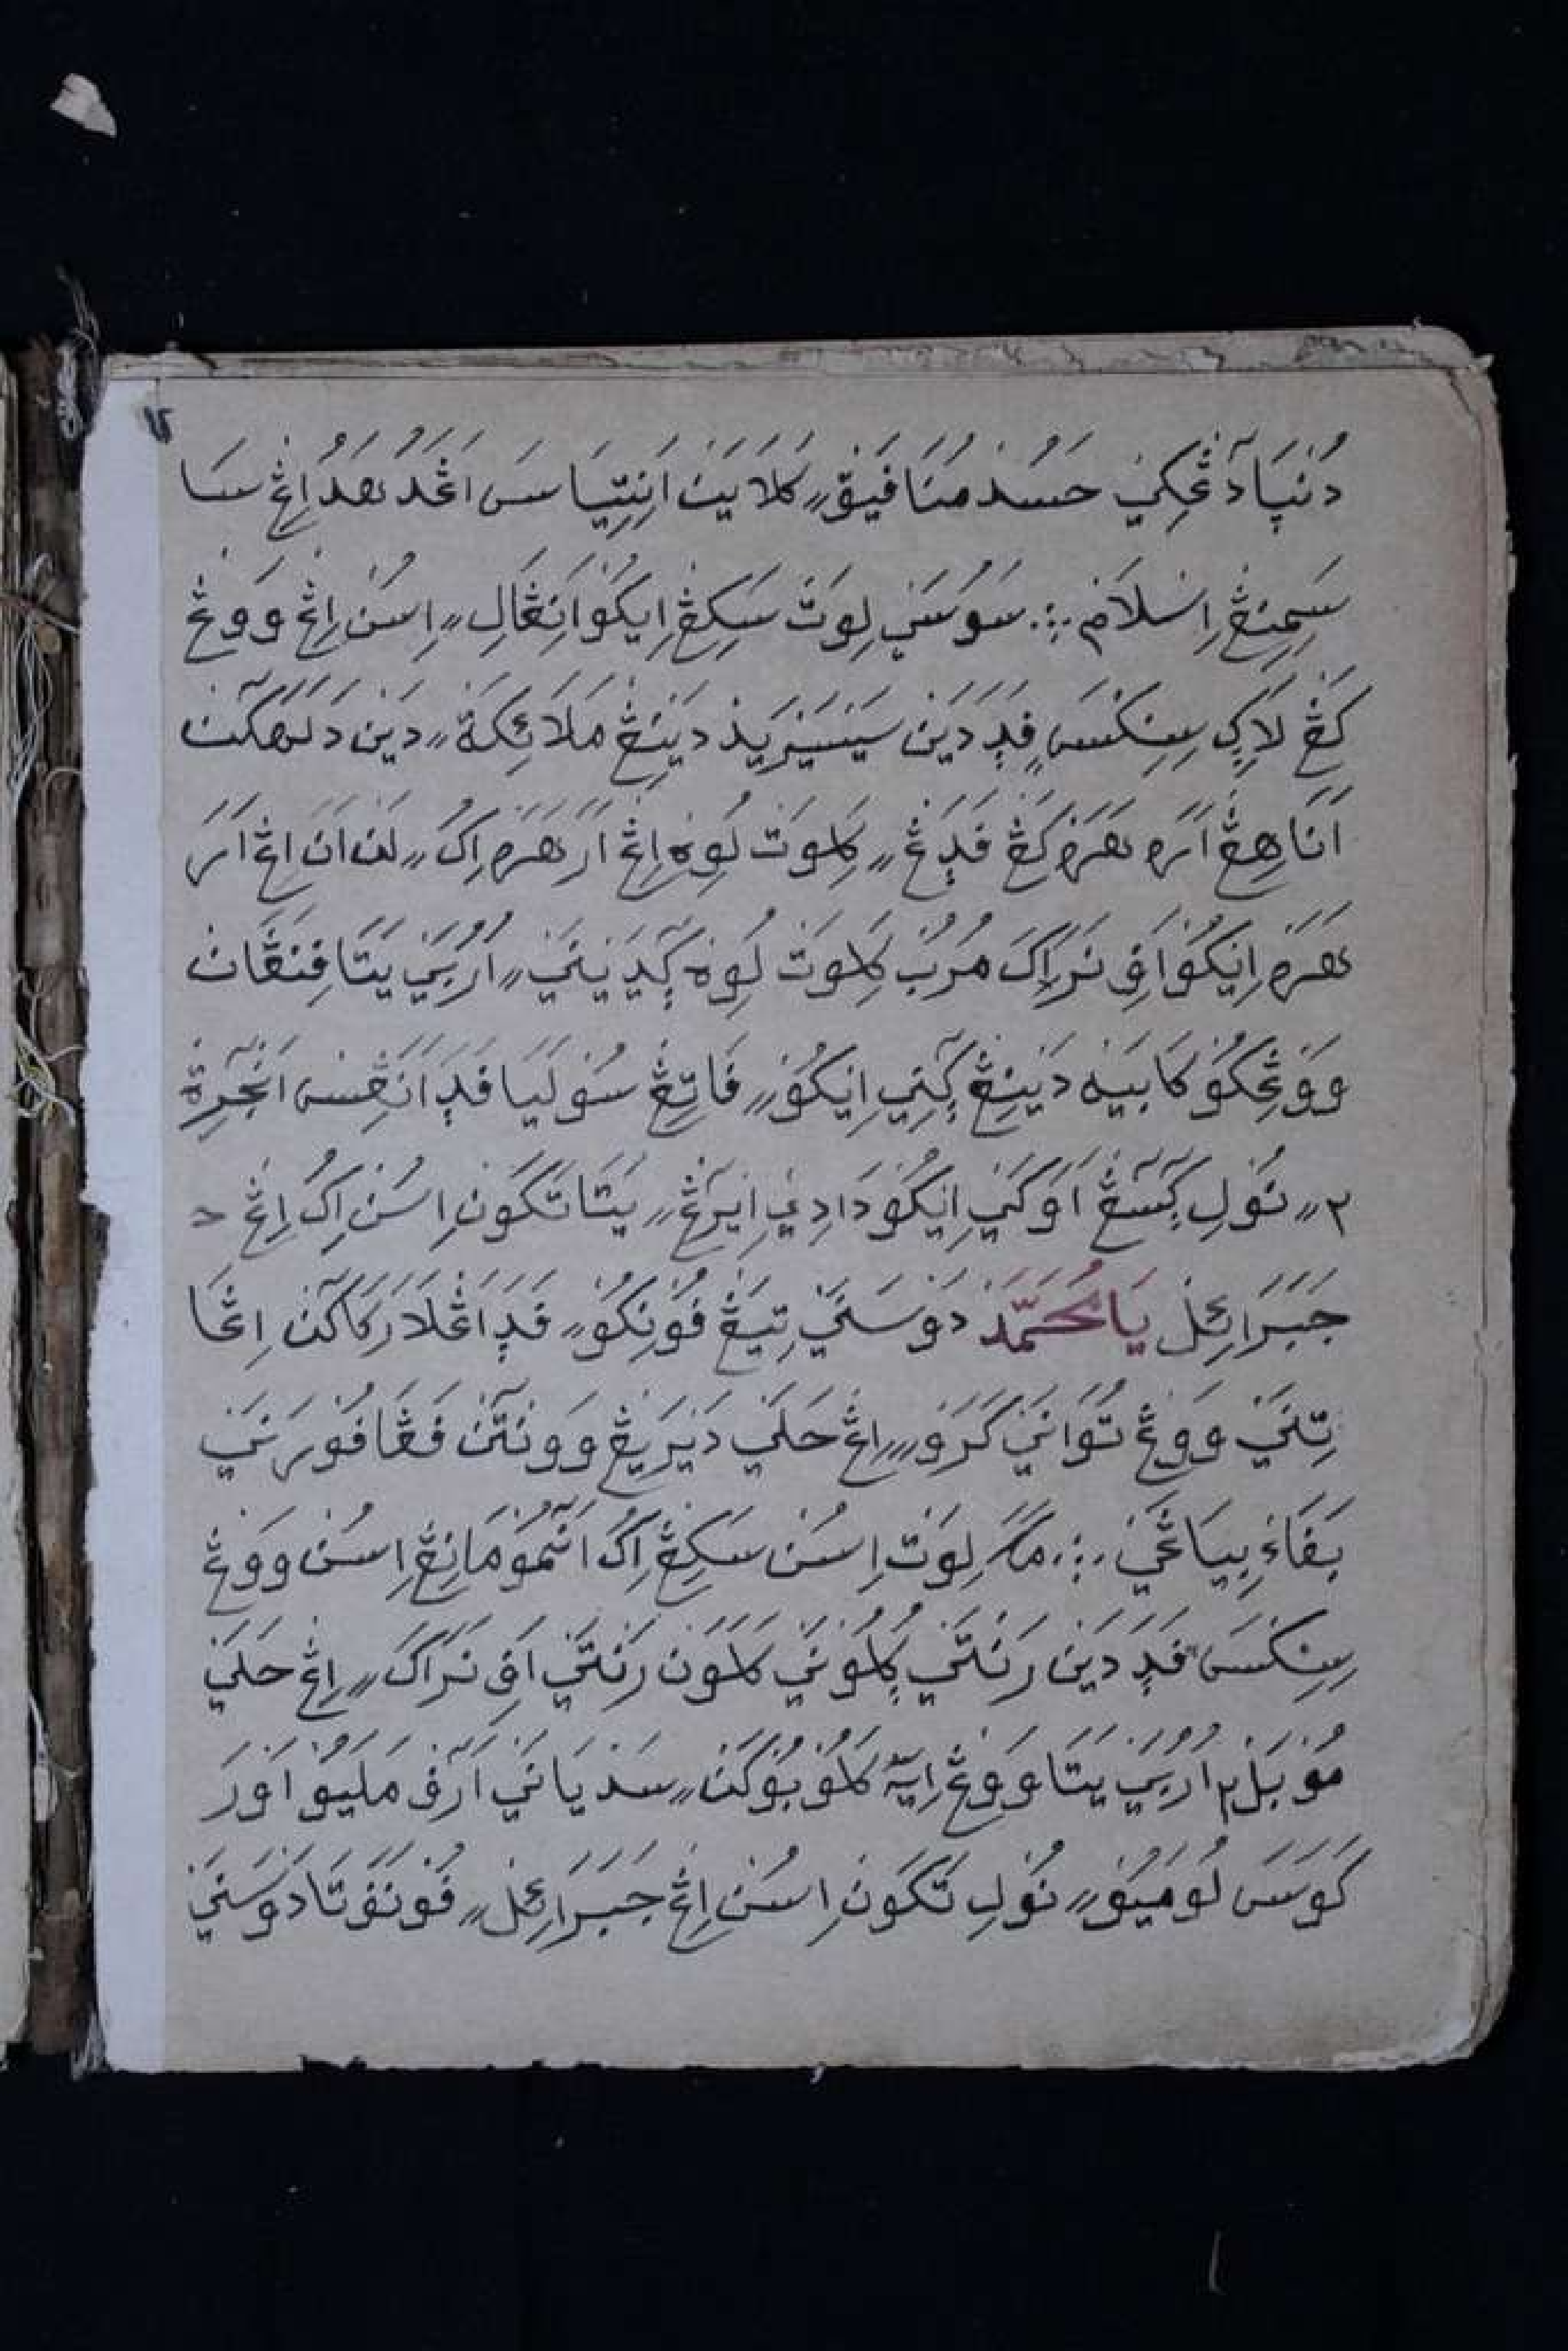 دُنْيَا دَڠْكِيْ حَسُدْ مُنَافِيْقْ كَلَايَنْ اَنِتِيَاسَ اَڠَدُ بهَدُ اِڠْ سَا
سَمِنِڠْ اِسْلَامْ ؞ سَوُسَنِ لِوَتْ سَكِڠْ اِيْكُوْ اَنِڠْالِ اِسُنْ اِڠْ وَوْڠْ
كَڠْ لَاكِ سِنِكْسَ فَدَ دَيْنْ سَيْسَيْرَيْدْ دَيْنِڠْ مَلَائِكَةْ دَيْنْ دَلهكٓنْ
اَنَا هِڠْ اَرَه بهَرَه كَڠْ فَدَڠْ كَلِوَتْ لُوِه اِڠْ اَرَ بهَرَه اِكُ لَنْ اَنَ اِڠْ اَرَ
بهَرَه اِيْكُوْ اَفِ نَرَاكَ مُرُبْ كَلِوَتْ لُوِه كٓدَيْنَيْ اُرُبَيْ يَتَا فِنَڠْڠَانْ
وَوْڠْكُوْ كَابَيْه دَيْنِڠْ كٓنِيْ اِيْكُوْ فَاتِڠْ سُوْلَيَا فَدَ اَنْڠِسْ اَنْجٓرِة
٢ نُوْلِ كٓسٓڠْ اَوَكَيْ اِيْكُوْ دَادِيْ اِيْرٓڠْ يَتَا تَكَوْنْ اِسُنْ اِكُ اِڠْ
جَبَرَائِلْ يَا مُحَمَّدْ دَوْسَنَيْ تِيَڠْ فُوْنِكُوْ فَدَ اَڠْلَارَكَاكٓنْ اِڠْا
تِنَيْ وَوْڠْ تُوَانَيْ كَرَوْ اِڠْ حَلَيْ دَيْرَيْڠْ وَوْنْتٓنْ فَڠْافُوْرَنَيْ
بَفَاءْ بِيَاڠَيْ ؞ مَكَ لِوَتْ اِسُنْ سَكِڠْ اِكُ اَتٓمُوْ مَانِڠْ اِسُنْ وَوْڠْ
سِنِكْسَ فَدَ دَيْنْ رَنْتَيْ بٓلُوْنَيْ كَلَوَنْ رَنْتَيْ اَفِ نَرَاكَ اِڠْ حَلَيْ
مُوْبَلْ٢ اُرُبَيْ يَتَا وَوْڠْ اِيّهْ كَلُوْبُوْكَنْ سَدْيَانَيْ اَرٓفْ مَلَيُوْ اَوْرَ
كَوَسَ لُوْمَيُوْ نُوْلِ تَكَوْنْ اِسُنْ اِڠْ جَبَرَائِلْ فُوْنَفَ تَا دَوْسَنَيْ